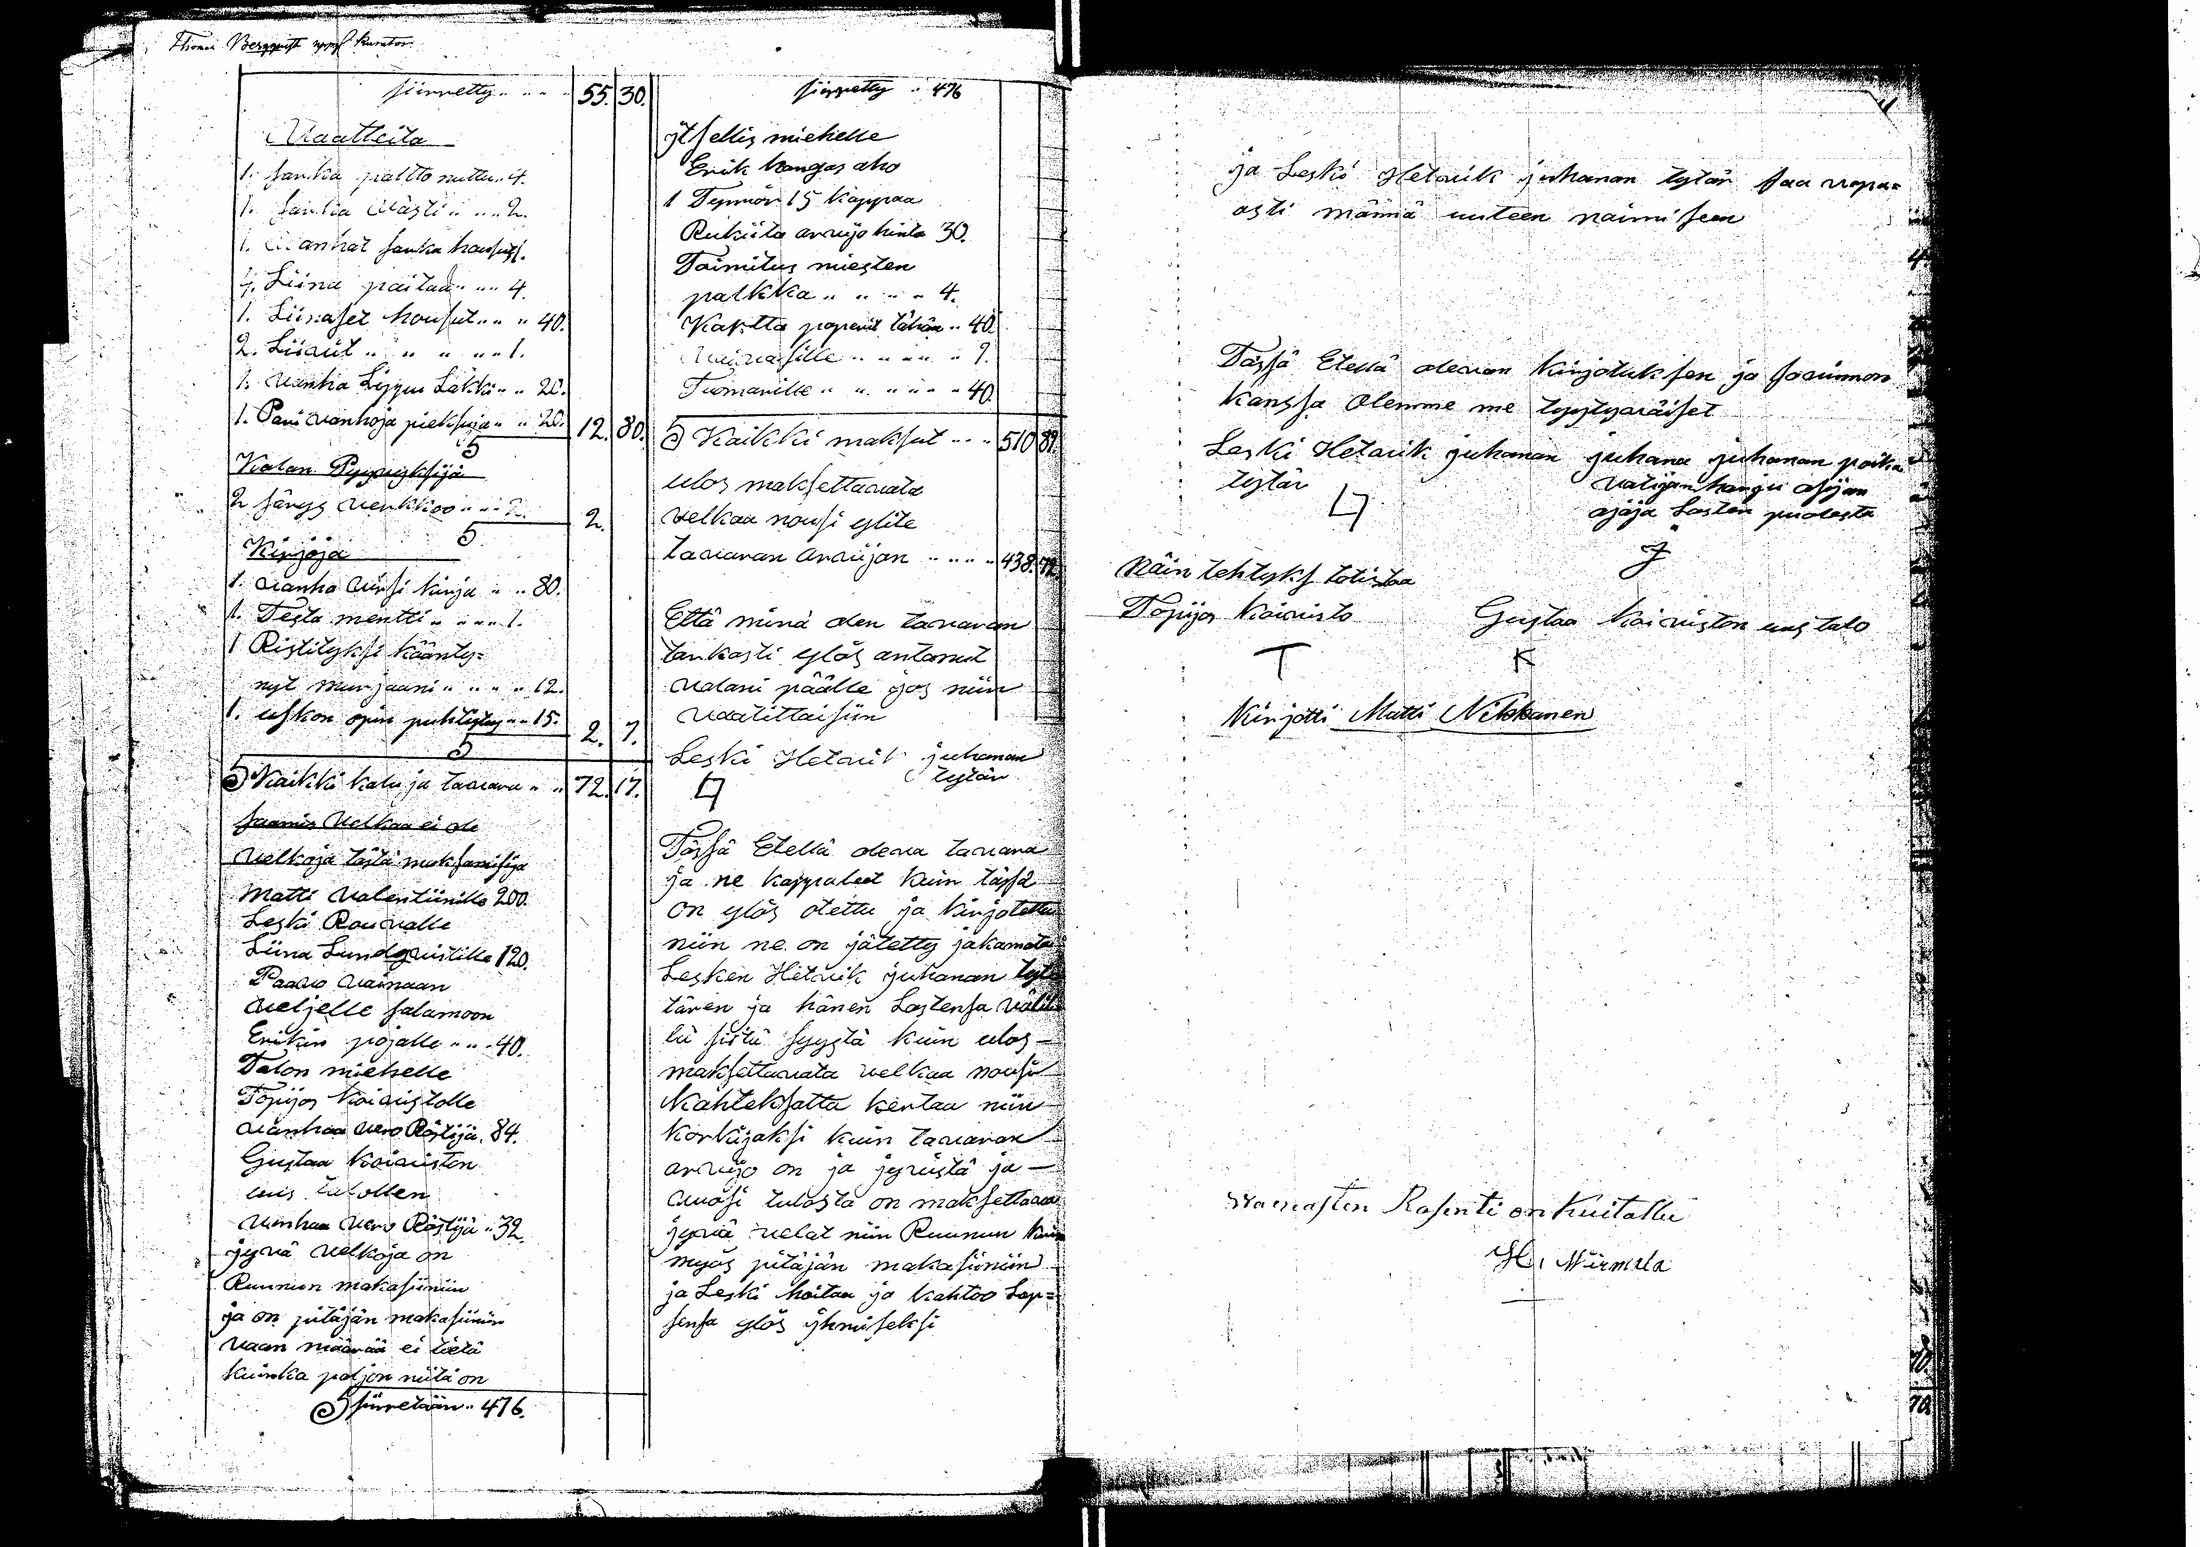 Thomas Bergqvist kurator
siirretty 55. 30.
Vaatteita
1. sarka paltto nuttu 4.
1. sarka västi 2.
1. vanhat sarka housut 1.
4. Liina paitaa 4.
1. Liinaset housut 40.
2. Liivit 1.
1. vanha Lippu Lakki 20.
1. Pari vanhoja pieksuja 20. 12. 80.
Kalan Pyyvyksijä
2 särys verkkoo 2. 2.
Kirjoja
1. vanha virsi kirja 80.
1. Testa mentti 1.
1 Ristityksi käänty=
nyt murjaani 12.
1. uskon opin puhtistus 15. 2. 7.
S Kaikki kalu ja tavara 72. 17.
saamis velkaa ei ole
velkoja tästä maksamisija
Matti Valentiinille 200.
Leski Rouvalle
Liina Lundqvistille 120.
Paavo vainaan
veljelle salamoon
Erikin pojalle 40.
Talon miehelle
Topijos Koivistolle
vanhaa vero Röstijä 84.
Gustaa Koiviston
uus talollen
vanhaa vero Röstijä 32.
jyvä velkoja on
Ruunun makasiiniin
ja on pitäjän makasiiniin
vaan määrää ei tietä
kuinka paljon niitä on
S siirretään 476.
siirretty 476
ytsellis miehelle
Erik kangas aho
1 Tynnör 15 kappaa
Rukiita arvijo hinta 30.
Toimitus miesten
palkka 4.
Kartta paperit tähän 40.
Vaivasille 9.
Tuomarille 40.
S Kaikki maksut 510 89.
ulos maksettavata
velkaa nousi ylite
tavaran arvijon 438. 72.
Että minä olen tavaran
tarkasti ylös antanut
valani päälle jos niin
vaatittaisiin
Leski Hetvik juhanan
tytär
Tässä Etellä oleva tavara
ja ne kappaleet kuin tässä
on ylös otettu ja kirjotettu
niin ne on jätetty jakamata
Lesken Hetvik juhanan tyt
tären ja hänen Lastensa väli
lä siitä syystä kuin ulos
maksettavata velkaa nousi
Kahteksatta kertaa niin
korkijaksi kuin tavaran
arvijo on ja jyvistä ja
vuosi tulosta on maksettava
jyvä velat niin Ruunun kuin
myös pitäjän makasiiniin
ja Leski hoitaa ja kahtoo Lap=
sensa ylös ihmiseksi
ja Leski Hetvik juhanan tytär saa vapa=
asti männä uuteen naimiseen
Tässä Etellä olevan kirjotuksen ja sovinnon
kanssa olemme me tyytyväiset
Leski Hetvik juhanan juhana juhanan poika
tytär
Vatijan kangas asijan
ajaja Lasten puolesta
Näin tehtyks totistaa
Topijos Koivisto Gustaa Koiviston uus talo
T K
Kirjotti Matti Nikkanen
Vaivasten Rosenti on Kuitattu
H. Niirmala